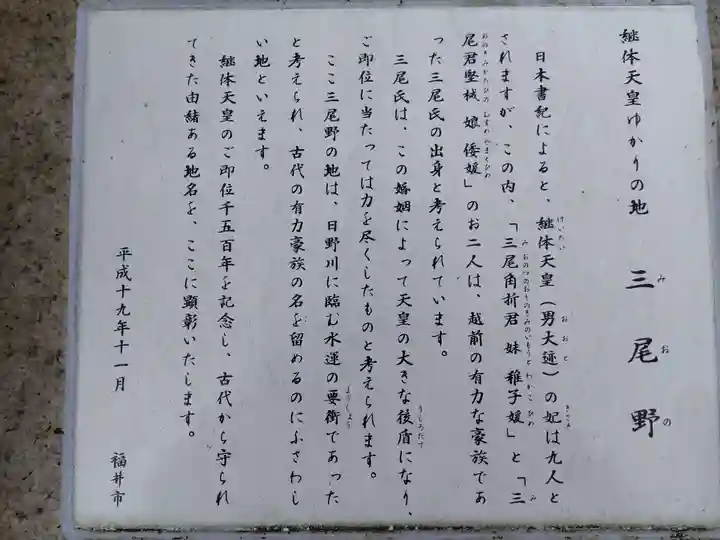 継体天皇ゆかりの地　三尾野
日本書紀によると、継体天皇（男大迹）の妃は九人と
されますが、この内、「三尾角折君妹稚子媛」と「三
尾君堅楲娘倭媛」のお二人は、越前の有力な豪族であ
った三尾氏の出身と考えられています。
三尾氏は、この婚姻によって天皇の大きな後盾になり、
ご即位に当たっては力を尽くしたものと考えられます。
ここ三尾野の地は、日野川に臨む水運の要衝であった
と考えられ、古代の有力豪族の名を留めるのにふさわし
い地といえます。
継体天皇のご即位千五百年を記念し、古代から守られ
てきた由緒ある地名を、ここに顕彰いたします。
平成十九年十一月
福井市